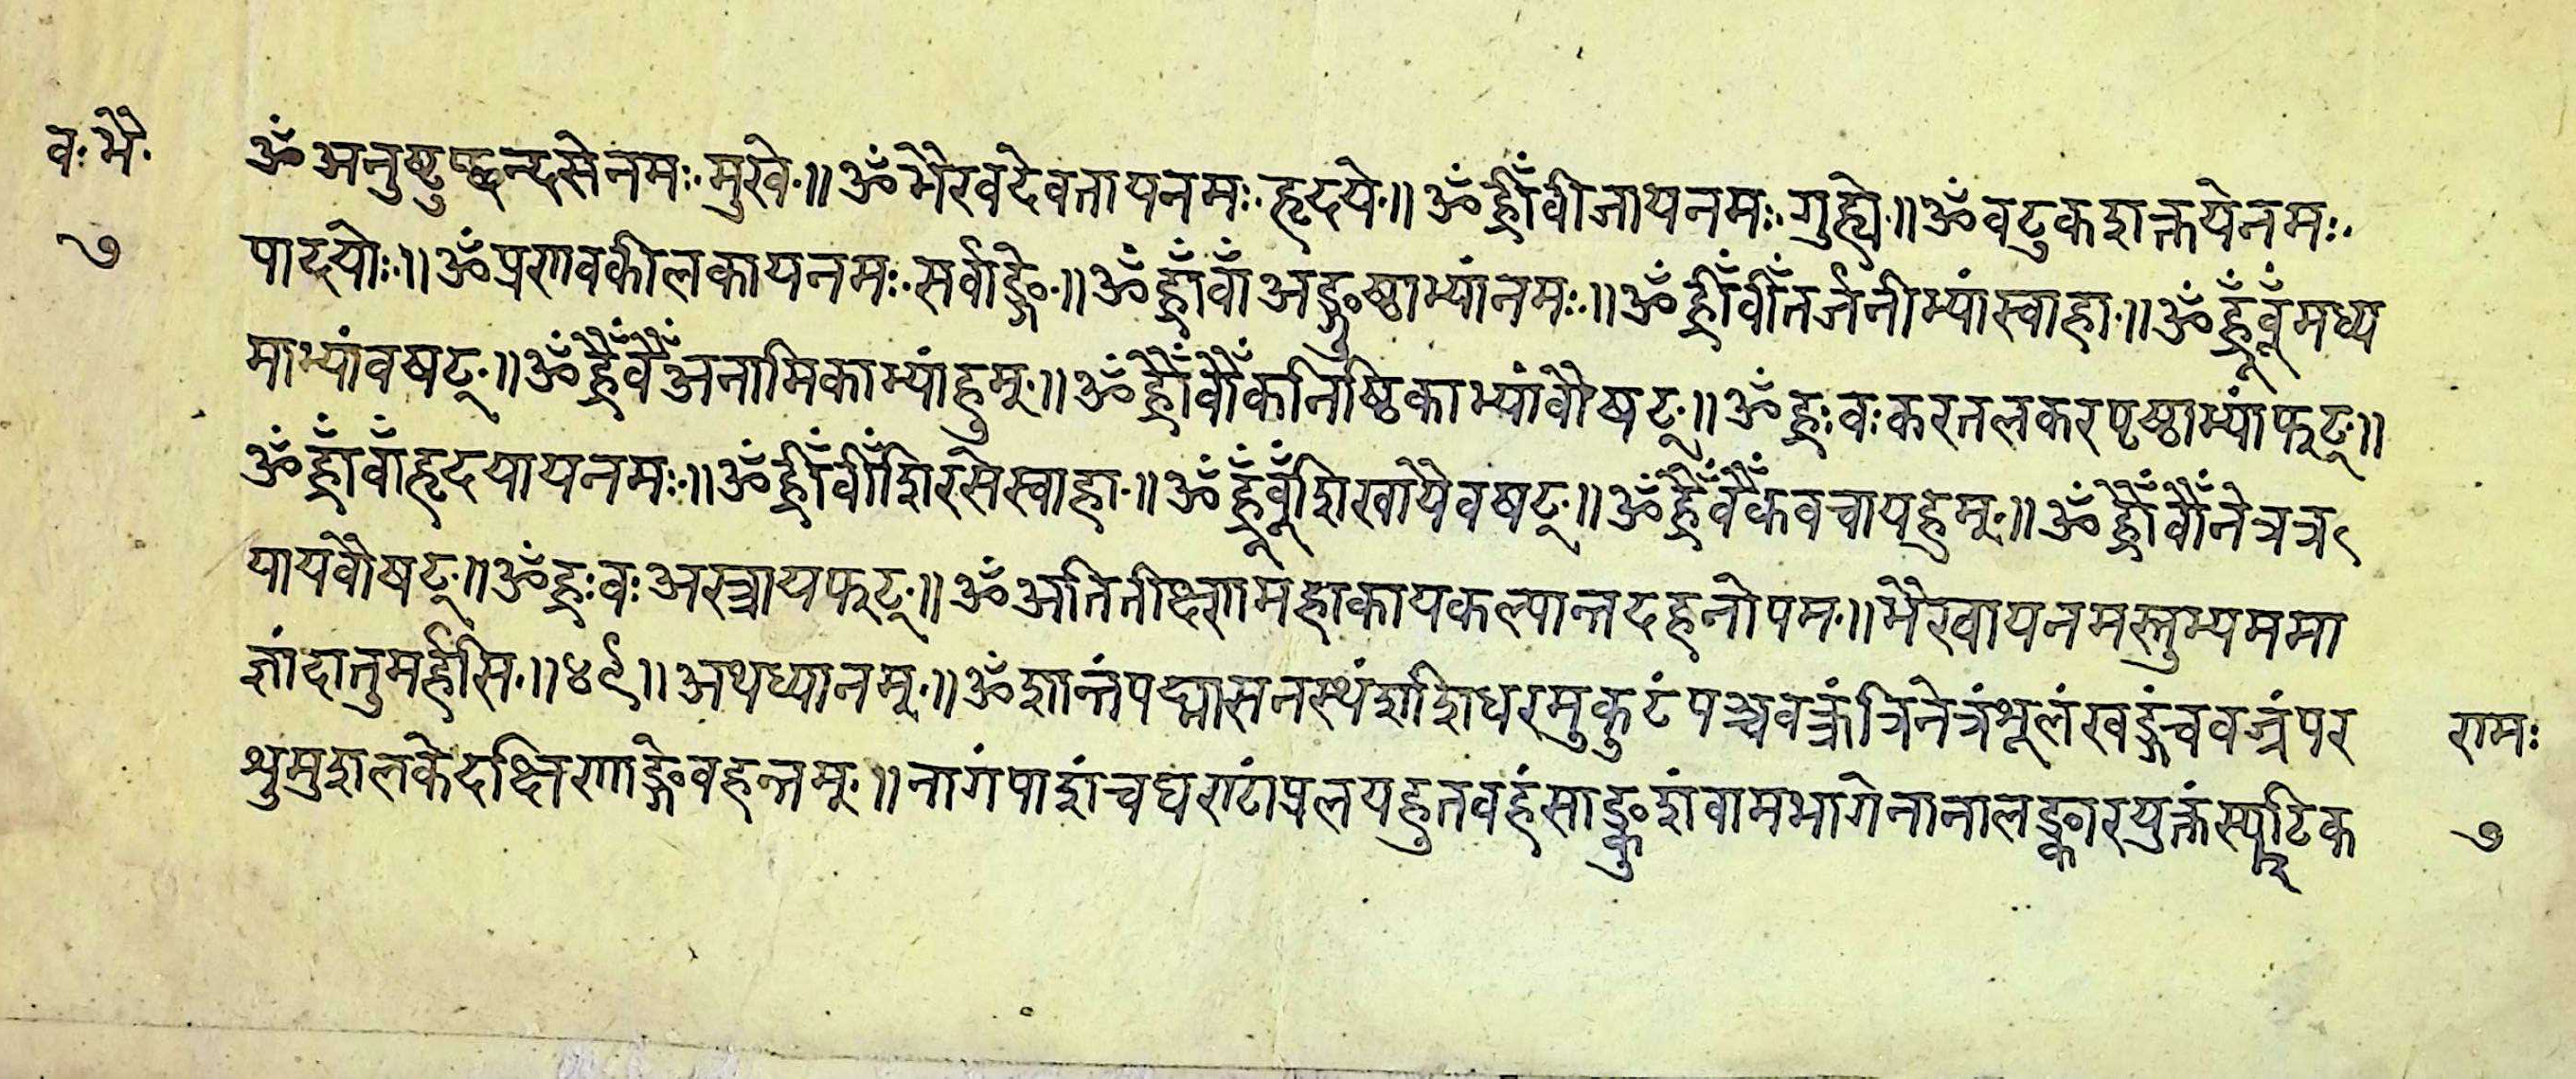 व. भै.
७
ॐ अनुष्टुप्छन्दसेनमः. मुखे.॥ ॐ भैरवदेवतायनमः. हृदये.॥ ॐ ह्रीँवीजायनमः. गुह्ये.॥ ॐ वटुकशक्तयेनमः.
पादयोः.॥ ॐ प्रणवकीलकायनमः. सर्वाङ्गे.॥ ॐ ह्राँवाँ अङ्गुष्ठाभ्यांनमः.॥ ॐ ह्रीँवीँतर्जनीभ्यांस्वाहा.॥ ॐ ह्रूँवूँमध्य
माभ्यांवषट्.॥ ॐ ह्रैँवैँअनामिकाभ्यांहुम्.॥ ॐ ह्रौँवौँकनिष्ठिकाभ्यांवौषट्.॥ ॐ ह्रः वः करतलकरपृष्ठाभ्यांफट्॥
ॐ ह्राँवाँहृदयायनमः.॥ ॐ ह्रीँवीँशिरसेस्वाहा.॥ ॐ ह्रूँवूँशिखायैवषट्.॥ ॐ ह्रैँवैँकवचायहुम्.॥ ॐ ह्रौँवौँनेत्रत्र
यायवौषट्.॥ ॐ ह्रः वः अस्त्रायफट्.॥ ॐ अतितीक्ष्णमहाकायकल्पान्तदहनोपम.॥ भैरवायनमस्तुभ्यममा
ज्ञांदातुमर्हसि.॥ ४९॥ अथध्यानम्.॥ ॐ शान्तंपद्मासनस्थंशशिधरमुकुटंपञ्चवक्त्रंत्रिनेत्रंशूलंखड्गंचवज्रंपर
शुमुशलकेदक्षिणाङ्गेवहन्तम्.॥ नागंपाशंचघण्टांप्रलयहुतवहंसाङ्कुशंवामभागेनानालङ्कारयुक्तंस्फटिक
रामः
७